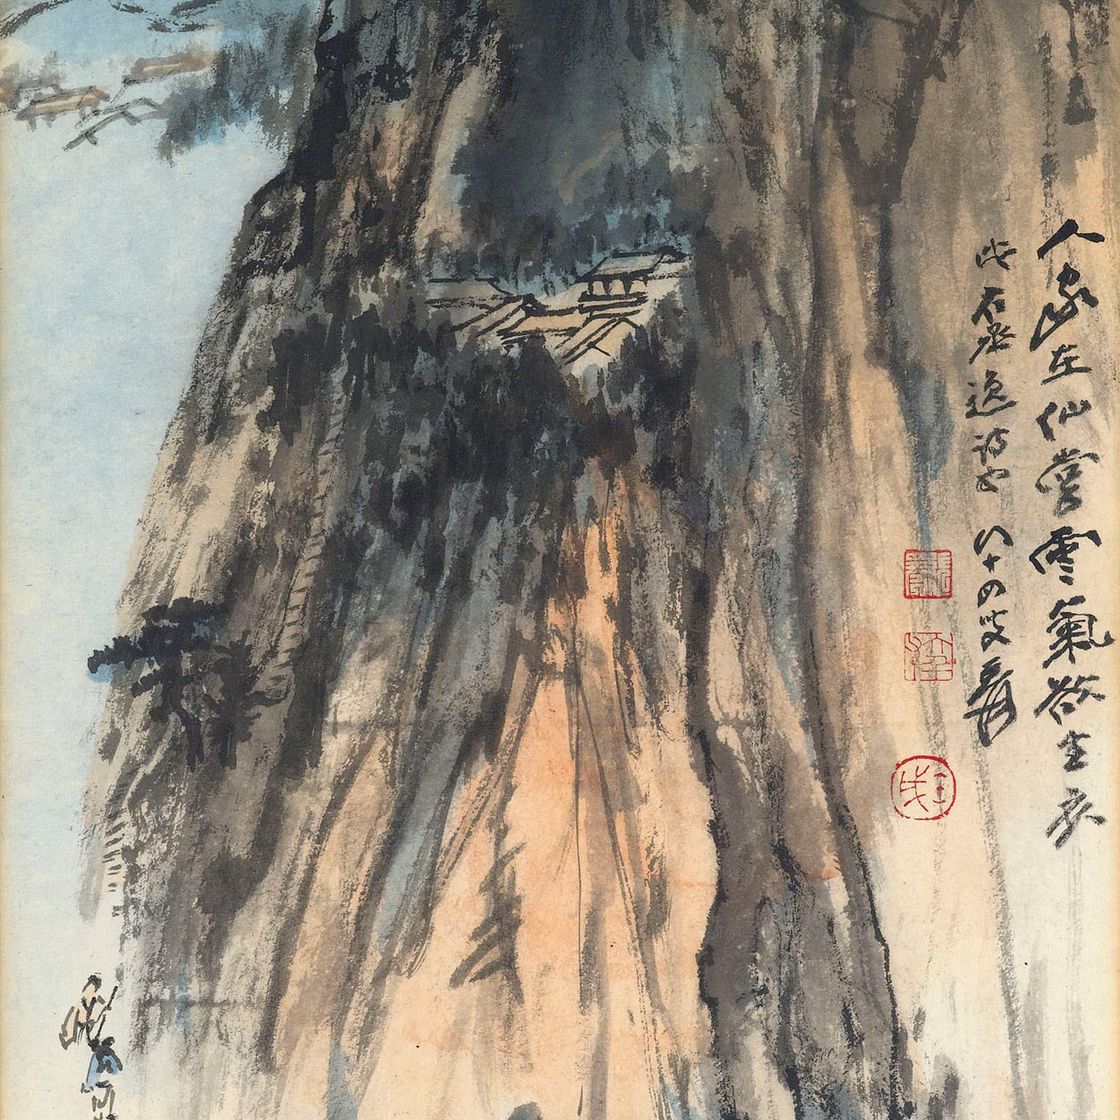 人家在仙掌雲氣欲生衣
此石濤逸詩也 八十四叟爰
壬戌